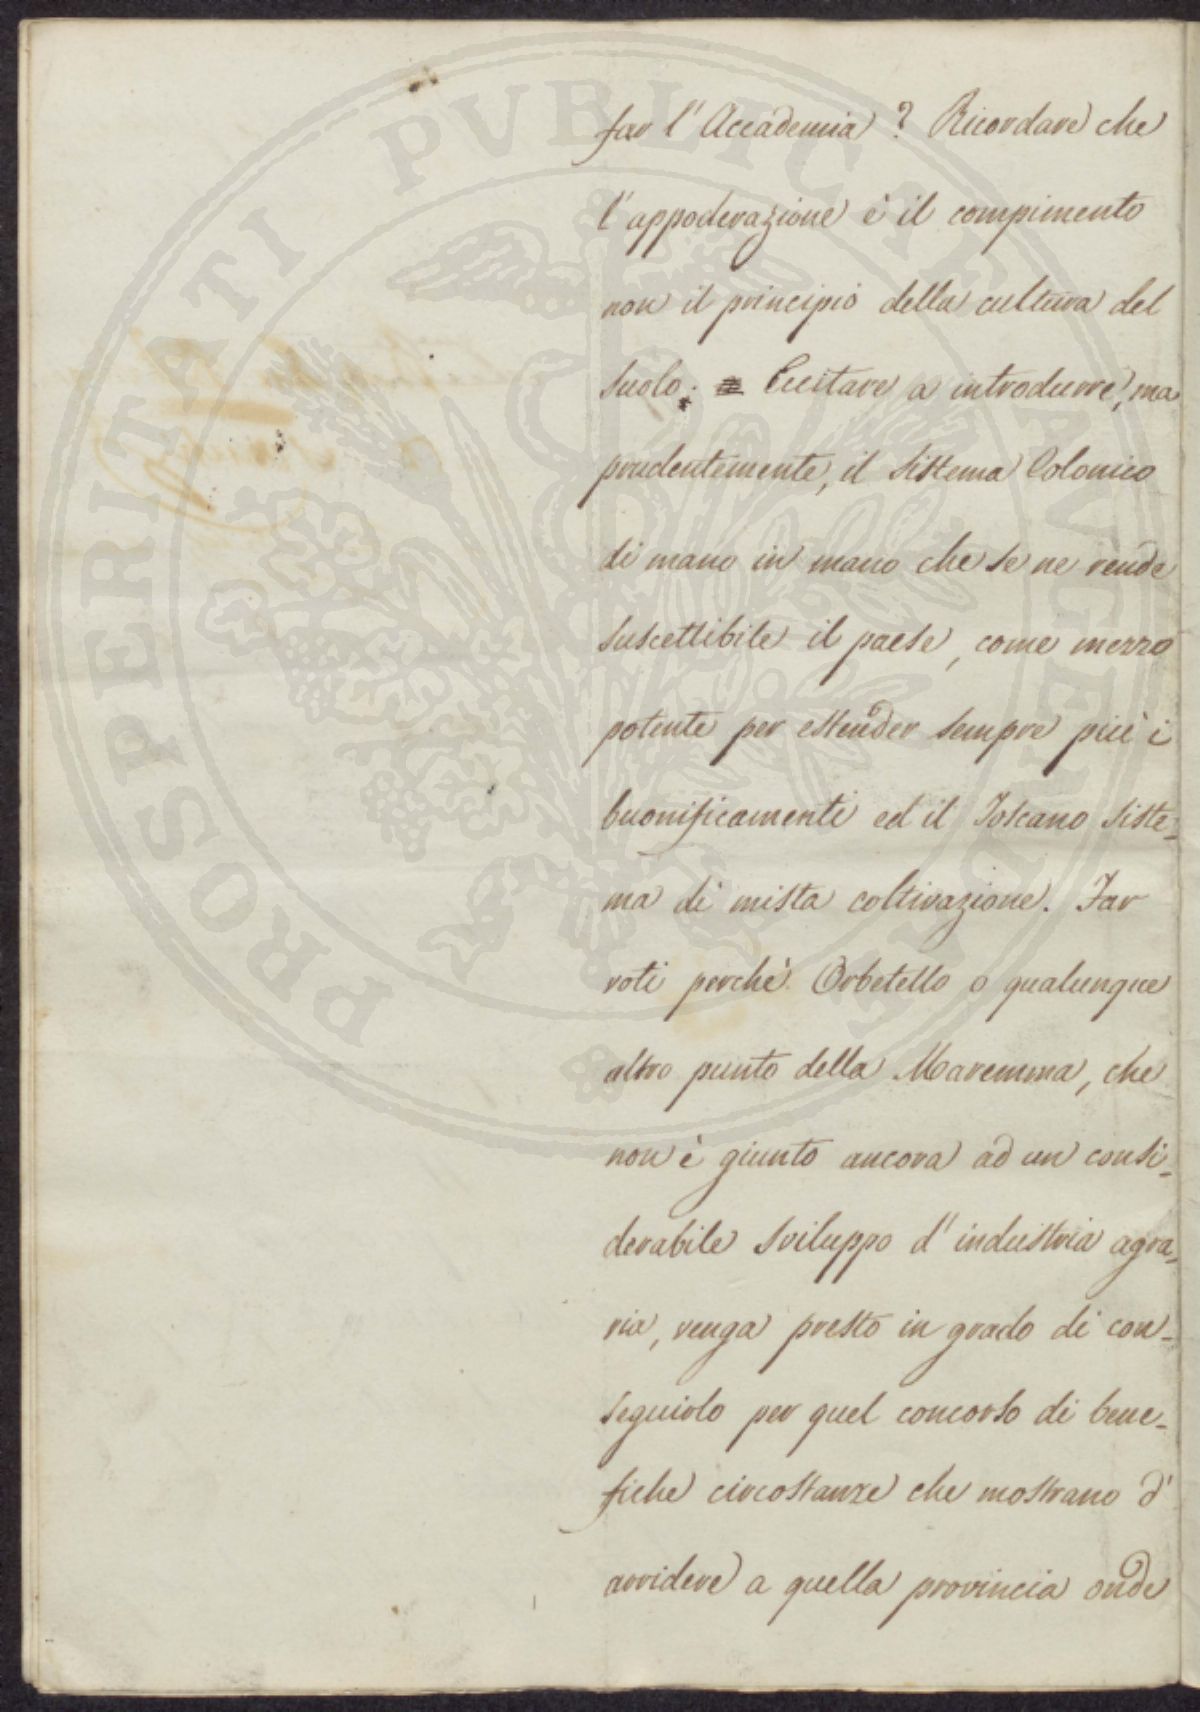 far l'Accademia? Ricordare che
l'appoderazione è il compimento
non il principio della cultura del
suolo; Eccitare a introdurre, ma
prudentemente, il sistema Colonico
di mano in mano che se ne rende
suscettibile il paese, come mezzo
potente per estender sempre più i
buonificamenti ed il Toscano siste-
ma di mista coltivazione. Far
voti perchè Orbetello o qualunque
altro punto della Maremma, che
non è giunto ancora ad un consi-
derabile sviluppo d'industria agra-
ria, venga presto in grado di con-
seguirlo per quel concorso di bene-
fiche circostanze che mostrano d'
arridere a quella provincia onde
PROSPERITATI PVBLICAE AVGENDAE